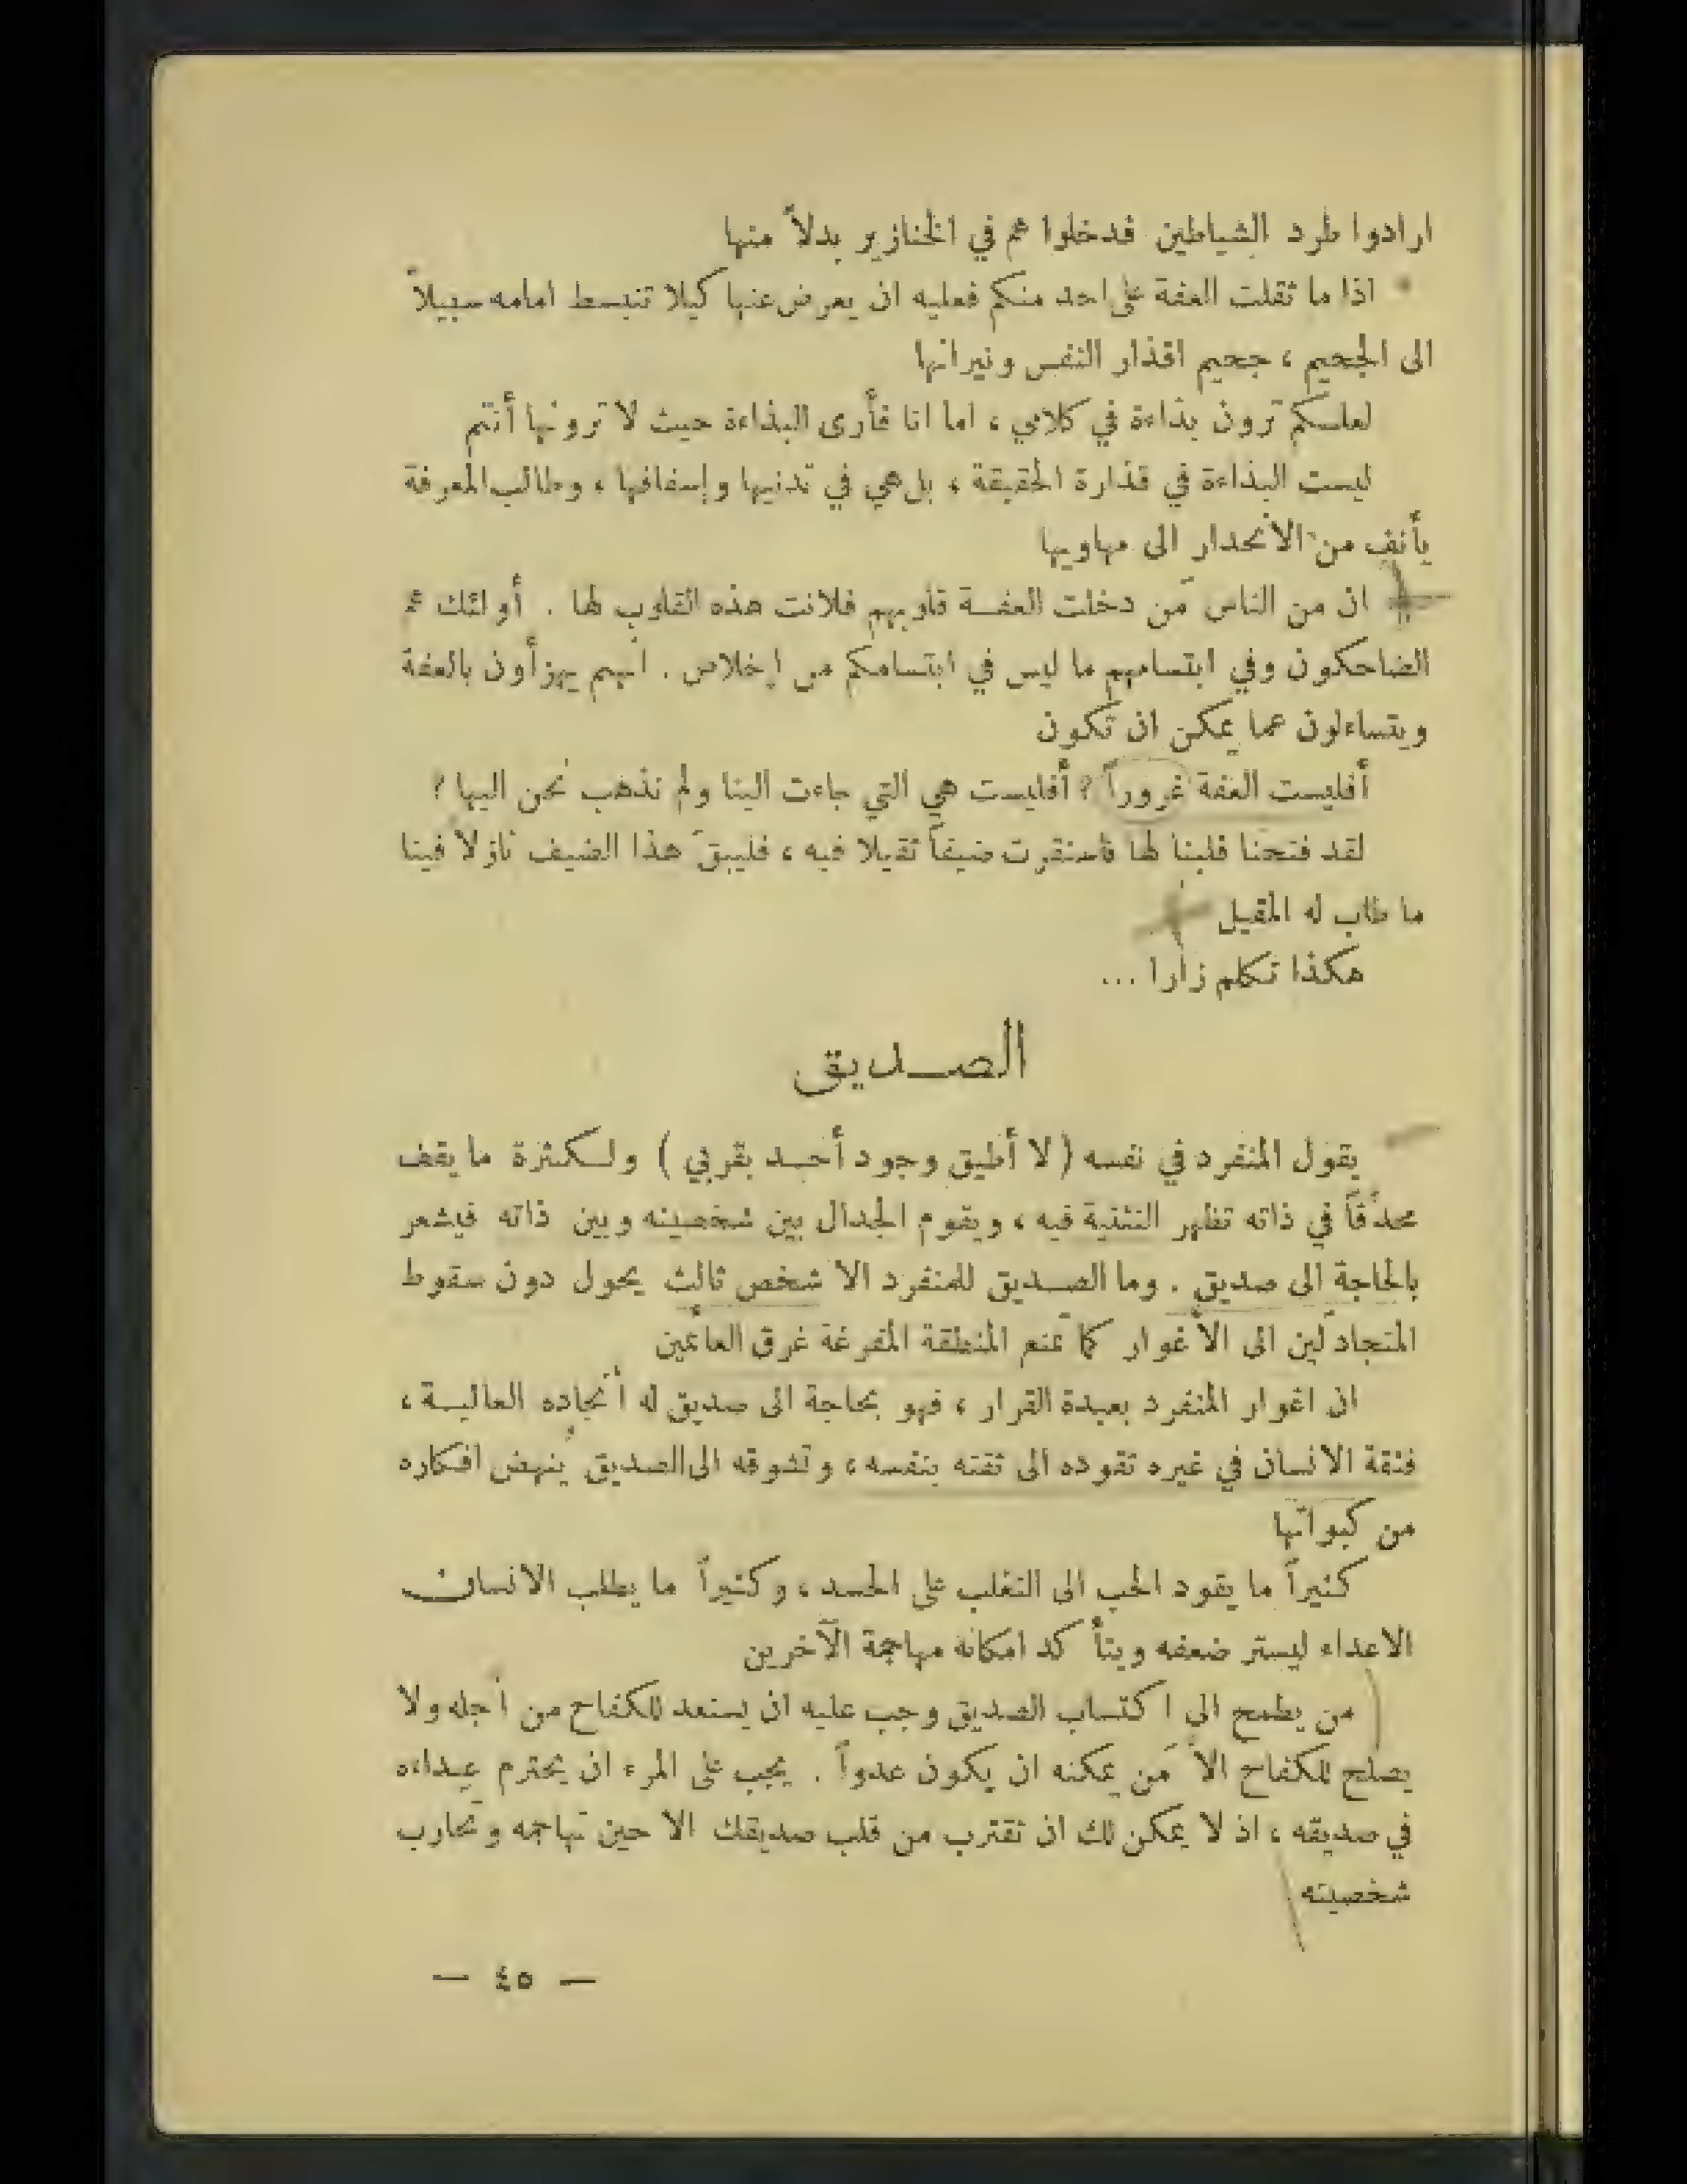 ارادوا طرد الشياطين فدخلوا هم في الخنازير بدلاً منها
اذا ما ثقلت العفة على احد منكم فعليه ان يعرض عنها كيلا تنبسط امامه سبيلاً
الى الجحيم ، جحيم اقذار النفس ونيرانها
لعلكم ترون بذاءة في كلامي ، اما انا فأرى البذاءة حيث لا ترونها أنتم
ليست البذاءة في قذارة الحقيقة ، بل هي في تدنيها وإسفافها ، وطالب المعرفة
يأنف من الانحدار الى مهاويها
ان من الناس مَن دخلت العفــة قلوبهم فلانت هذه القلوب لها . أولئك هم
الضاحكون وفي ابتسامهم ما ليس في ابتسامكم من إخلاص . انهم يهزأون بالعفة
ويتساءلون عما يمكن ان تكون
أفليست العفة غروراً ؟ أفليست هي التي جاءت الينا ولم نذهب نحن اليها ؟
لقد فتحنا قلبنا لها فاستقرت ضيفاً ثقيلا فيه ، فليبقَ هذا الضيف نازلاً فينا
ما طاب له المقيل
هكذا تكلم زارا ...
الصــديق
يقول المنفرد في نفسه ( لا أطيق وجود أحــد بقربي ) ولــكثرة ما يقف
محدّقاً في ذاته تظهر التثنية فيه ، ويقوم الجدال بين شخصيته وبين ذاته فيشعر
بالحاجة الى صديق . وما الصــديق للمنفرد الا شخص ثالث يحول دون سقوط
المتجادلَين الى الأغوار كما تمنع المنطقة المفرغة غرق العائمين
ان اغوار المنفرد بعيدة القرار ، فهو بحاجة الى صديق له أنجاده العاليــة ،
فثقة الانسان في غيره تقوده الى ثقته بنفسه ، وتشوقه الى الصديق يُنهض افكاره
من كبواتها
كثيراً ما يقود الحب الى التغلب على الحسد ، وكثيراً ما يطلب الانسان
الاعداء ليستر ضعفه ويتأكد امكانه مهاجمة الآخرين
من يطمح الى اكتساب الصديق وجب عليه ان يستعد للكفاح من أجله ولا
يصلح للكفاح الاّ مَن يمكنه ان يكون عدواً . يجب على المرء ان يحترم عِداءه
في صديقه ، اذ لا يمكن لك ان تقترب من قلب صديقك الا حين تهاجمه وتحارب
شخصيته
— ٤٥ —